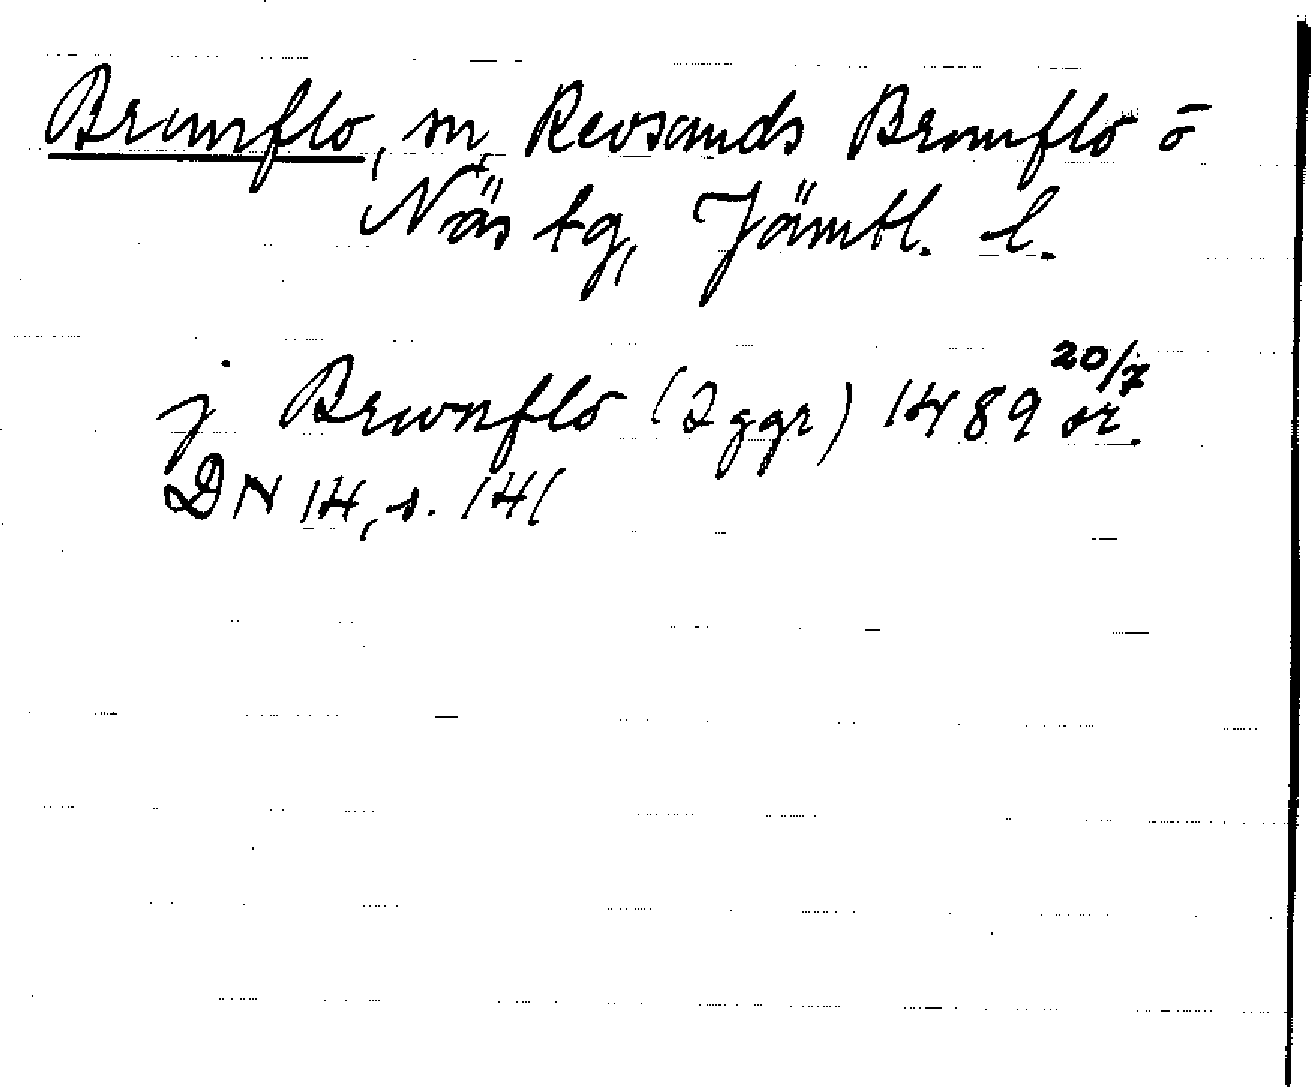 Brunflo, sn, Revsunds Brunflo ō
Näs tg, Jämtl. l.
j Brwnflo (2 ggr) 1489 20/7 or.
DN 14, s. 141